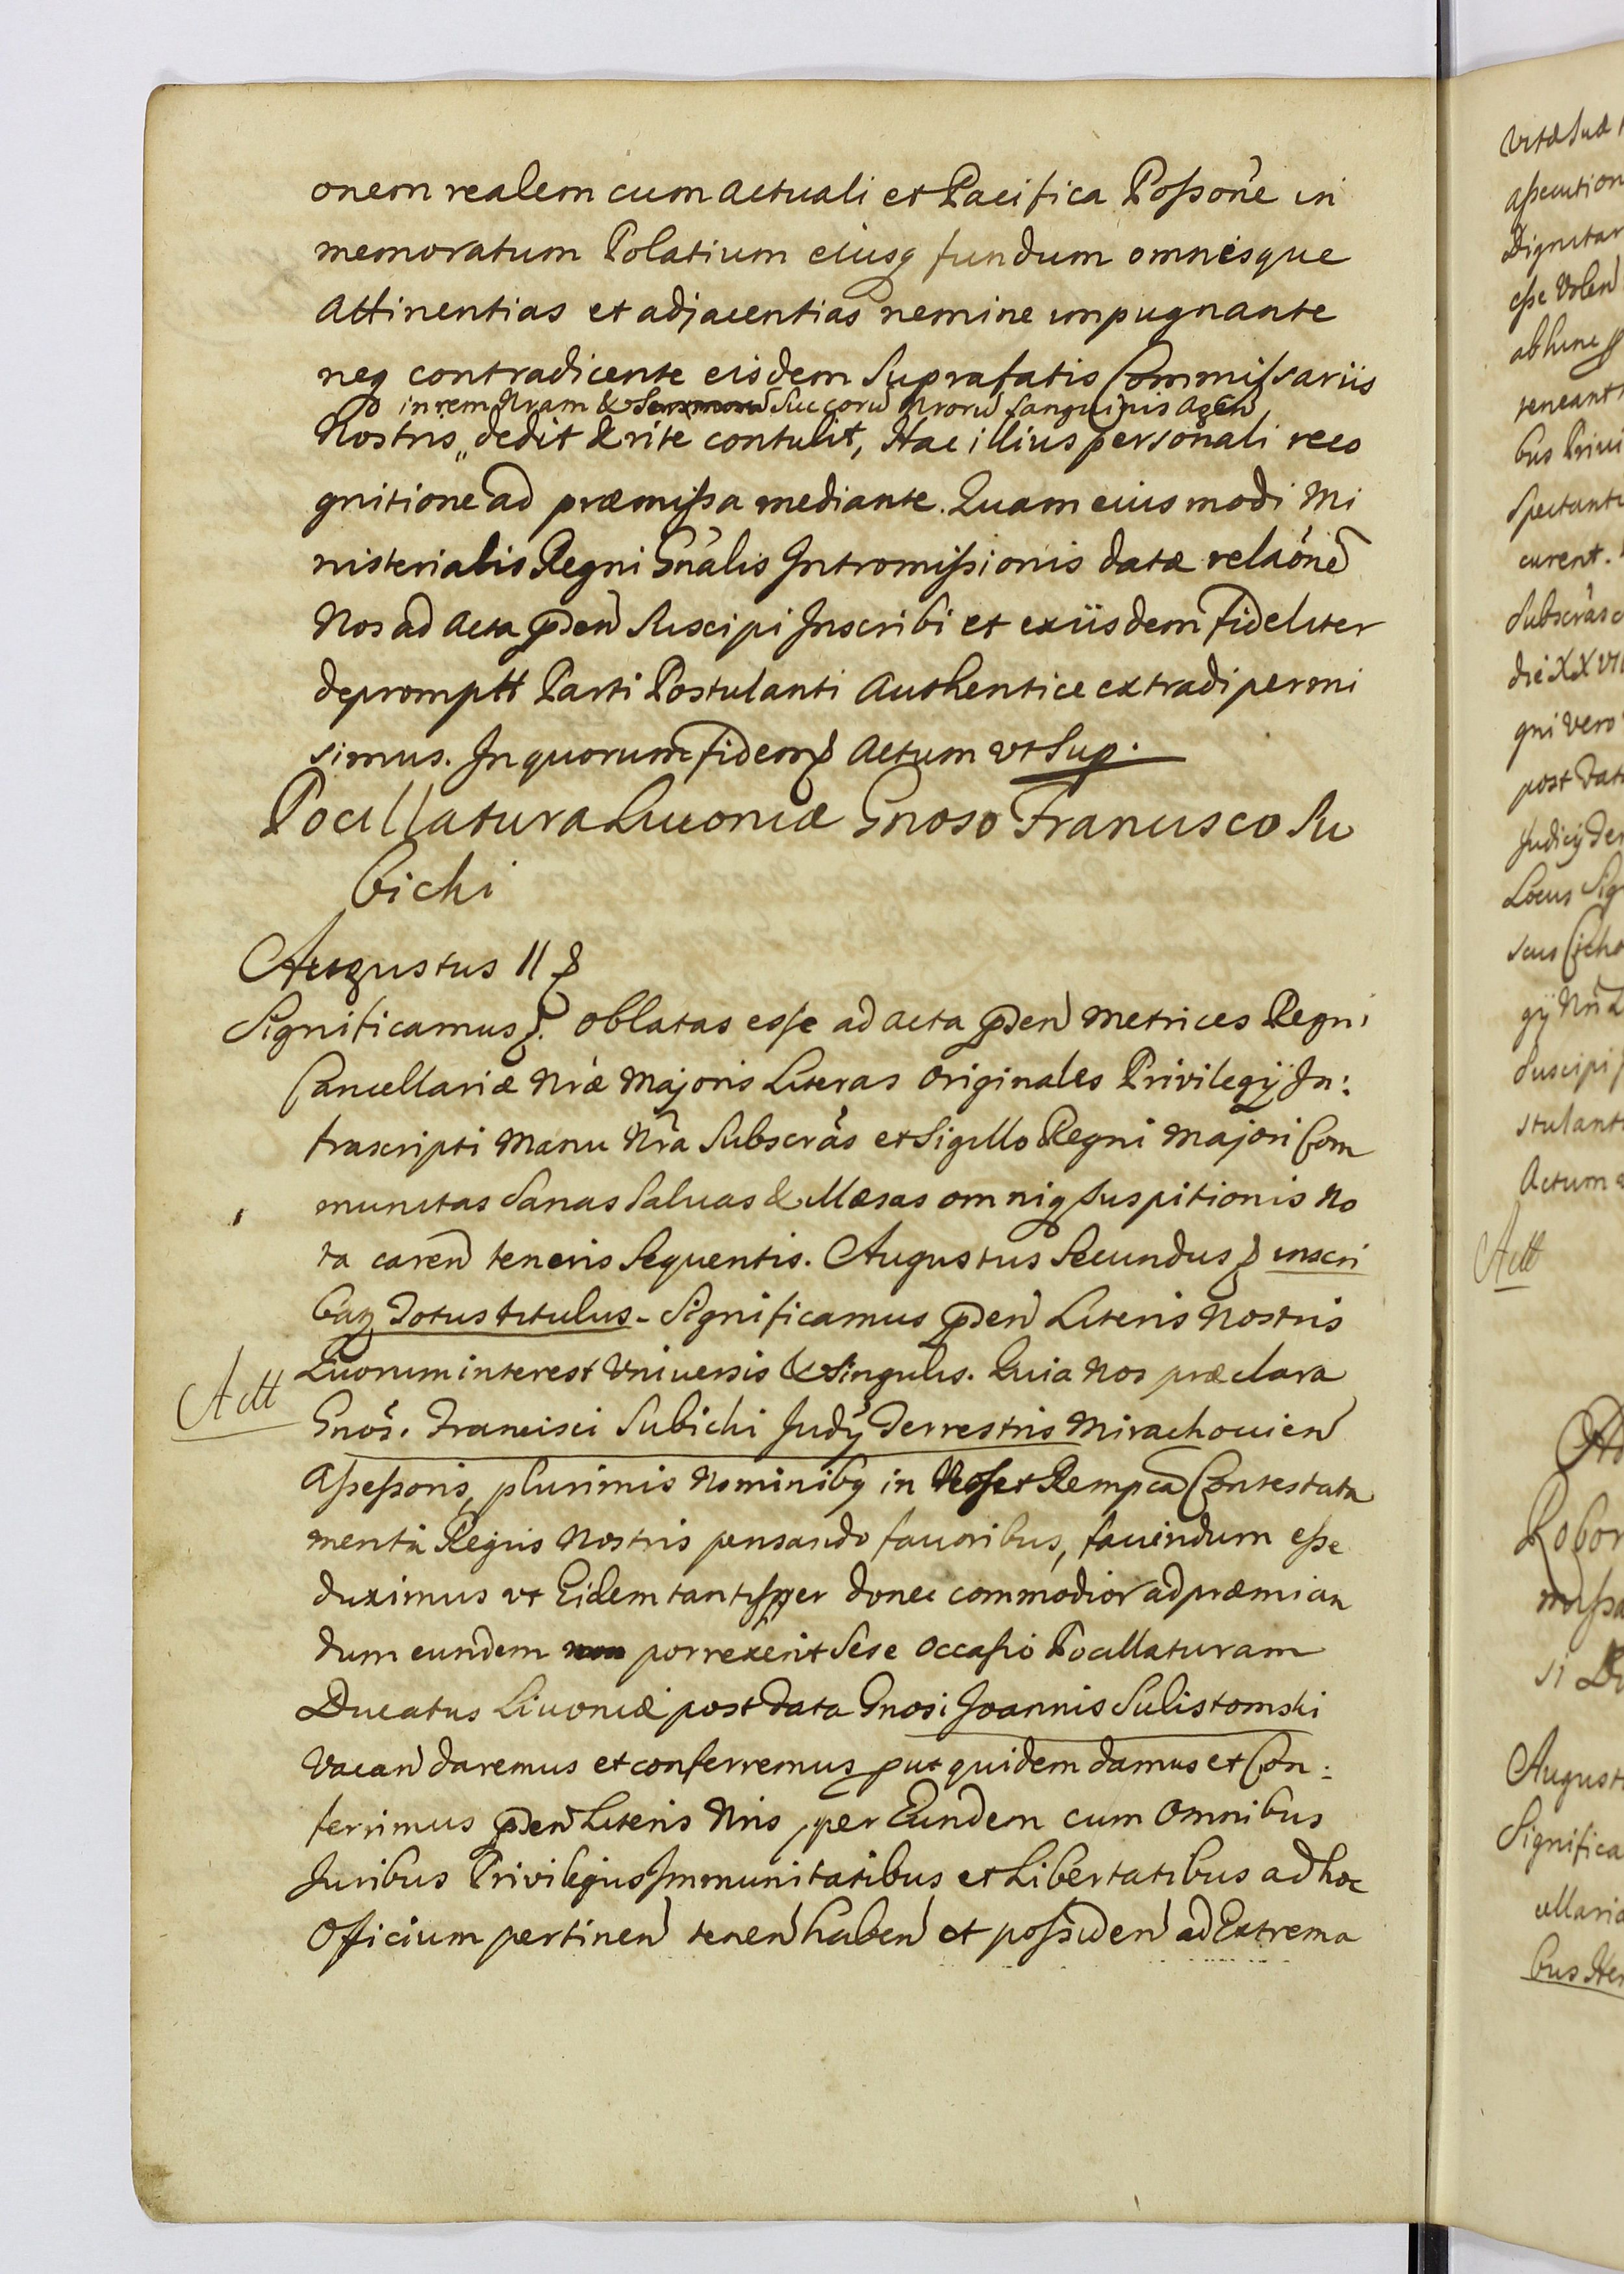 onem realem cum actuali et Pacifica Poßone in
memoratum Polatium eiusq fundum omnesque
attinentias et adjacentias nemine impugnante
neq contradicente eisdem Suprafatis Commissariis
in rem Nram & Succorū Nrorū Sanguinis agen
Nostris,, dedit & rite contulit, Hac illius personali reco
gnitione ad præmißa mediante. Quam eius modi Mi
nisterialis Regni Gnalis Intromißionis datæ relaonē
Nos ad Acta pñden Suscipi Inscribi et exiisdem fideliter
deprompt Parti Postulanti Authentice extradi permi
simus. In quorum fidem Actum vt Sup.
Pocillatura Liuoniæ Gnoso Francisco Su
bichi
Augustus II
Significamus. oblatas esse ad acta pñden Metrices Regni
Cancellariæ Nræ Majoris Literas originales Privilegÿ In:
frascripti Manu Nra Subscras et Sigillo Regni Majori Com
munitas Sanas Saluas & Illæsas omniq Suspitionis No
ta caren tenoris Sequentis. Augustus Secundus inscri
baz Totus titulus. Significamus pñden Literis Nostris
Quorum interest Vniuersis & Singulis. Quia Nos præclara
Actt
Gnos. Francisci Subichi Judÿ Terrestris Mirachouien
Aßeßoris, plurimis Nominibq in Nos et Rempca Contestata
menta Regiis Nostris pensando fauoribus, fauendum eße
duximus vt Eidem tantisper donec commodior ad præmian
dum eundem porrexerit Sese occasio Pocillaturam
Ducatus Liuoniæ post data Gnosi Joannis Sulistomski
Vacan daremus et conferremus, put quidem damus et Con:
ferimus pñden Literis Nris, per Eundem cum omnibus
Juribus Privilegiis Immunitatibus et Libertatibus ad hoc
Officium pertinen tenen haben et poßiden ad Extrema
vitæ Suæ
Dignitar
eße Volen
abhinc
teneant
bus Privi
Spectante
curent.
Subscras
die XXVII
gni vero
post dat
Judicÿ Ter
Locus Sig
gÿ Nri
Suscipi
stulant
Actum
Actt
Robor
Augusti
Significa
cellaria